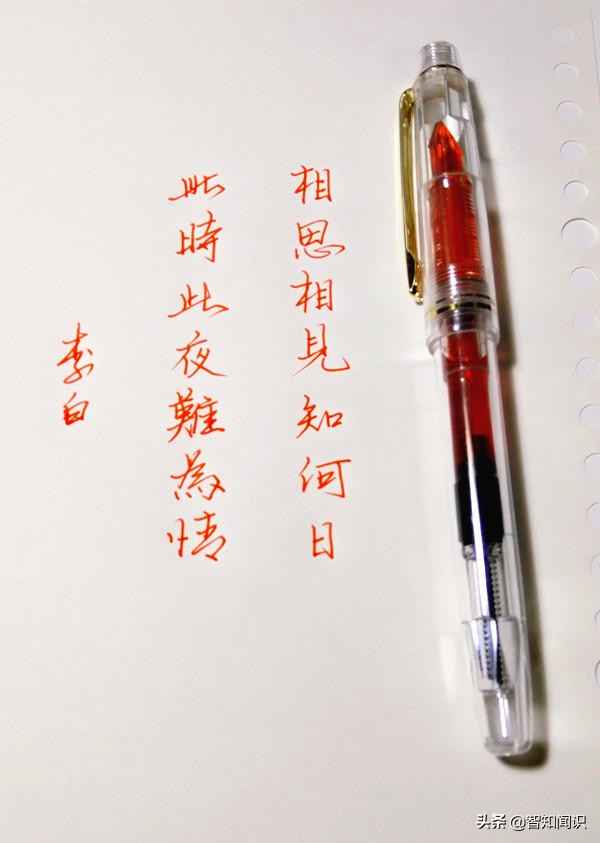 相思相見知何日
此時此夜難為情
李白
头条 @智知闻识